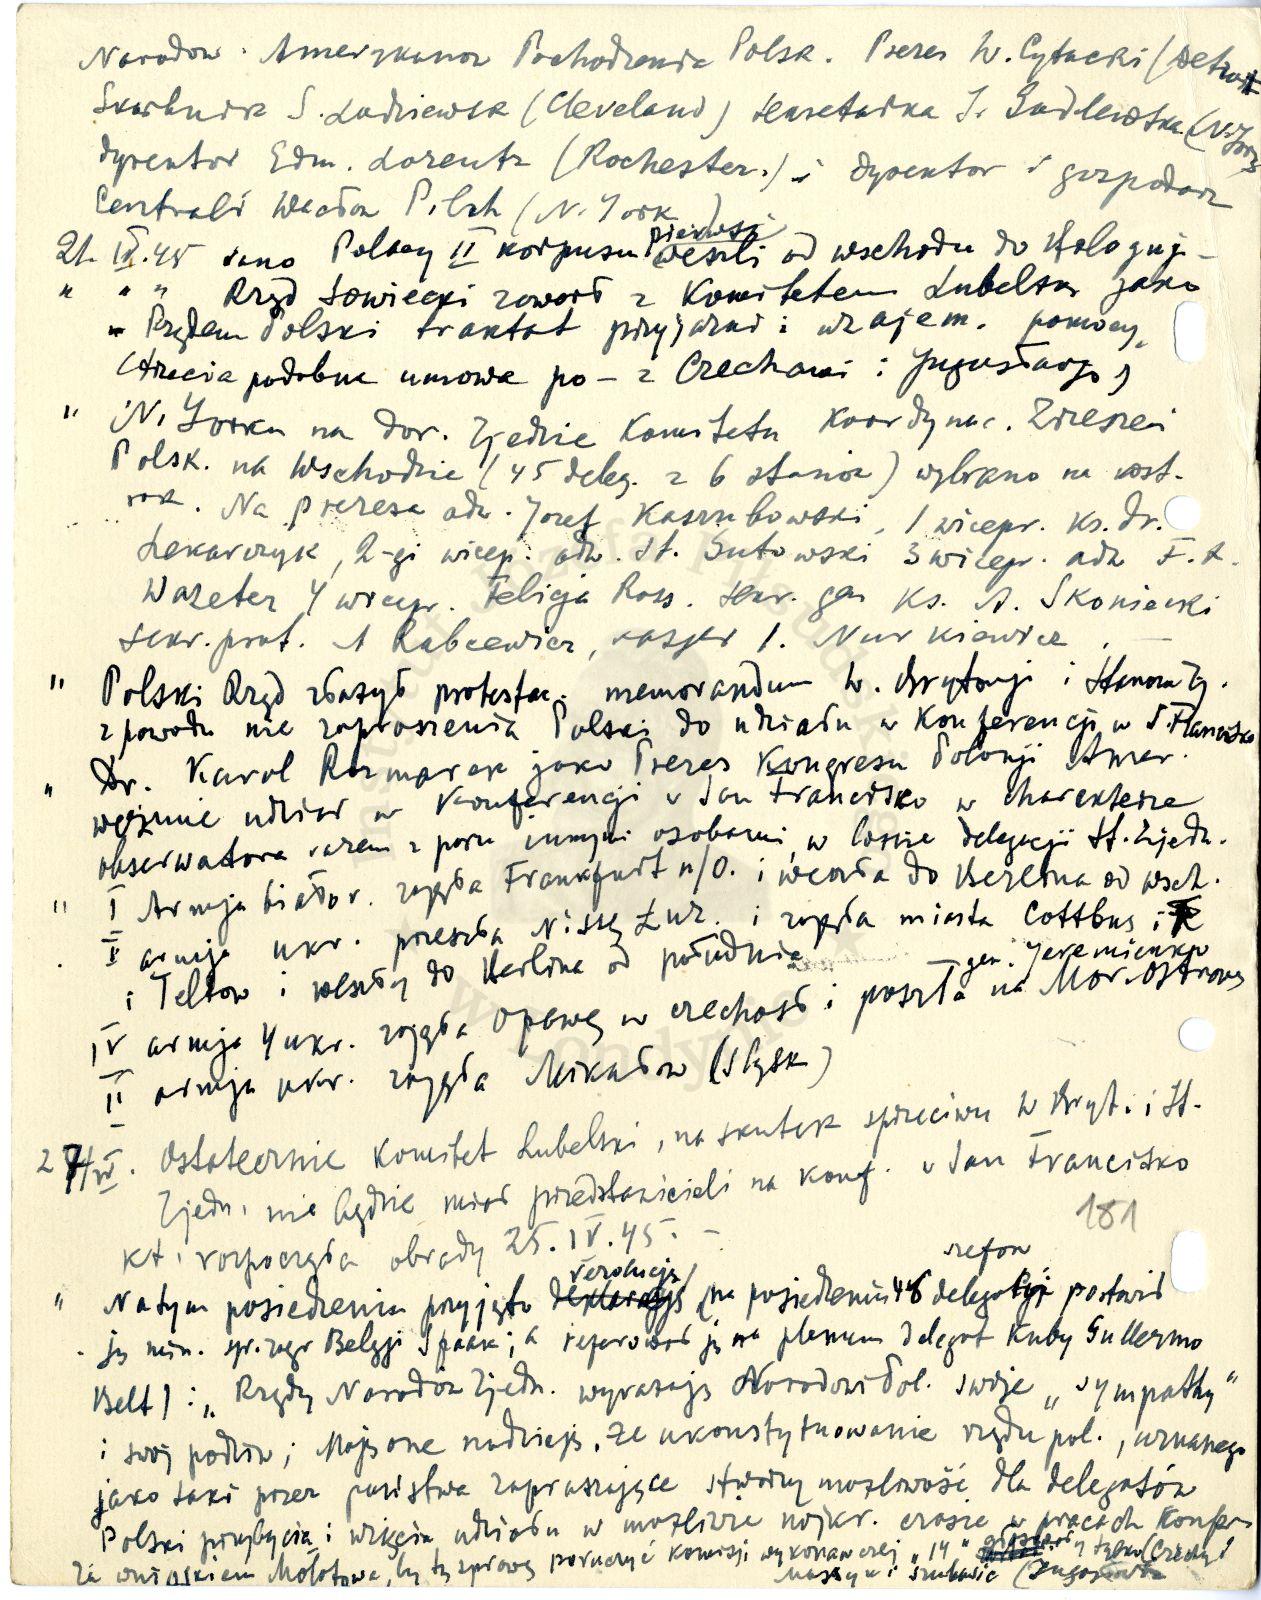 Narodow. Amerykanow Pochodzenia Polsk. Prezes W. Cytacki (Detroit
Skarbnik S. Ludziewska (Cleveland) sekretarka J. Sadlewska (N. York
dyrektor Edm. Lorentz (Rochester.) i dyrektor i gospodarz
Centrali Wacław Pilch (N. York)
21. IV. 45 rano Polacy II korpusu pierwsi weszli od wschodu do Bolognji -
" " " Rząd sowiecki zawarł z Komitetem Lubelsk jako
" Rządem Polski traktat przyjaźni i wzajem. pomocy,
(trzecia podobna umowa po - z Czechami i Jugosławją)
" N. Yorku na dor. Zjeździe Komitetu Koordynac. Zrzeszeń
Polsk. na Wschodzie (45 deleg. z 6 stanów) wybrano na nast.
rok. Na prezesa adw. Józef Kaszubowski, 1 wicepr. ks. dr.
Lekarczyk, 2-gi wicep. adw. St. Gutowski 3 wicepr. adw F. X.
Wazeter 4 wicepr. Felicja Ross. sekr. gen ks. A. Skoniecki
sekr. prot. A Rabcewicz, kasjer I. Nurkiewicz. -
" Polski Rząd złożył protestac. memorandum W. Brytanji i Stanom Zj.
z powodu nie zaproszenia Polski do udziału w Konferencji w S. Francisko
" Dr. Karol Rozmarek jako Prezes Kongresu Polonji Amer.
weźmie udział w Konferencji w San Francisko w charakterze
obserwatora razem z paru innymi osobami, w łonie delegacji St. Zjedn.
" I Armja białor. zajęła Frankfurt n/O. i weszła do Berlina od wsch.
II armja ukr. przeszła Nissę Łuż. i zajęła miasta Cottbus i
i Teltow i weszły do Berlina od południa
gen. Jeremienko
IV armja 4 ukr. zajęła Opawę w Czechosł i poszła na Mor. Ostrowę
II armja ukr. zajęła Mikołów (Śląsk)
24/IV. Ostatecznie Komitet Lubelski, na skutek sprzeciwu W Bryt. i St.
Zjedn. nie będzie miał przedstawicieli na konf. w San Francisko
181
kt. rozpoczęła obrady 25. IV. 45. -
rezolucję szefow
" Na tym posiedzeniu przyjęto deklarację (na posiedzeniu 46 delegacyj postawił
ją min. spr. zagr Belgji Spaak; a referował ją na plenum delegat Kuby Gullermo
Belt): „Rządy Narodów Zjedn. wyrażają Narodowi Pol. swoje „sympathy"
i swój podziw; Mają one nadzieję, że ukonstytuowanie rządu pol., uznanego
jako taki przez państwa zapraszające stworzy możliwość dla delegatów
Polski przybycia i wzięcia udziału w możliwie najkr. czasie w pracach Konfer.
Za wnioskiem Mołotowa, by tę sprawę poruczyć komisji wykonawczej „14" tylko (Czechy)
Massryk i Szubasic (Jugosławia